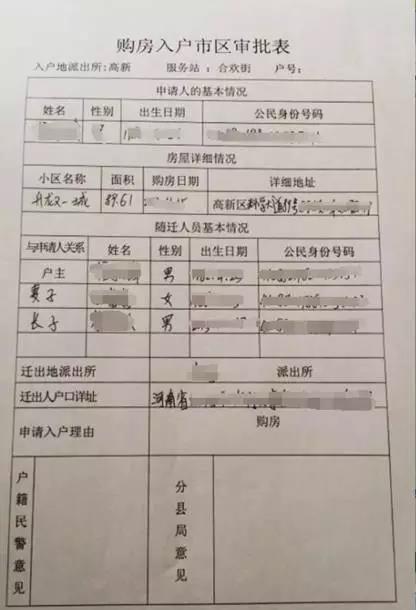 购房入户市区审批表
入户地派出所：高新 服务站：合欢街 户号：
申请人的基本情况
姓名 性别 出生日期 公民身份号码
房屋详细情况
小区名称 面积 购房日期 详细地址
升龙又一城 89.61 高新区科学大道
随迁人员基本情况
与申请人关系 姓名 性别 出生日期 公民身份号码
户主 男
妻子 女
长子 男
迁出地派出所 派出所
迁出人户口详址 河南省
申请入户理由 购房
户籍民警意见 分县局意见